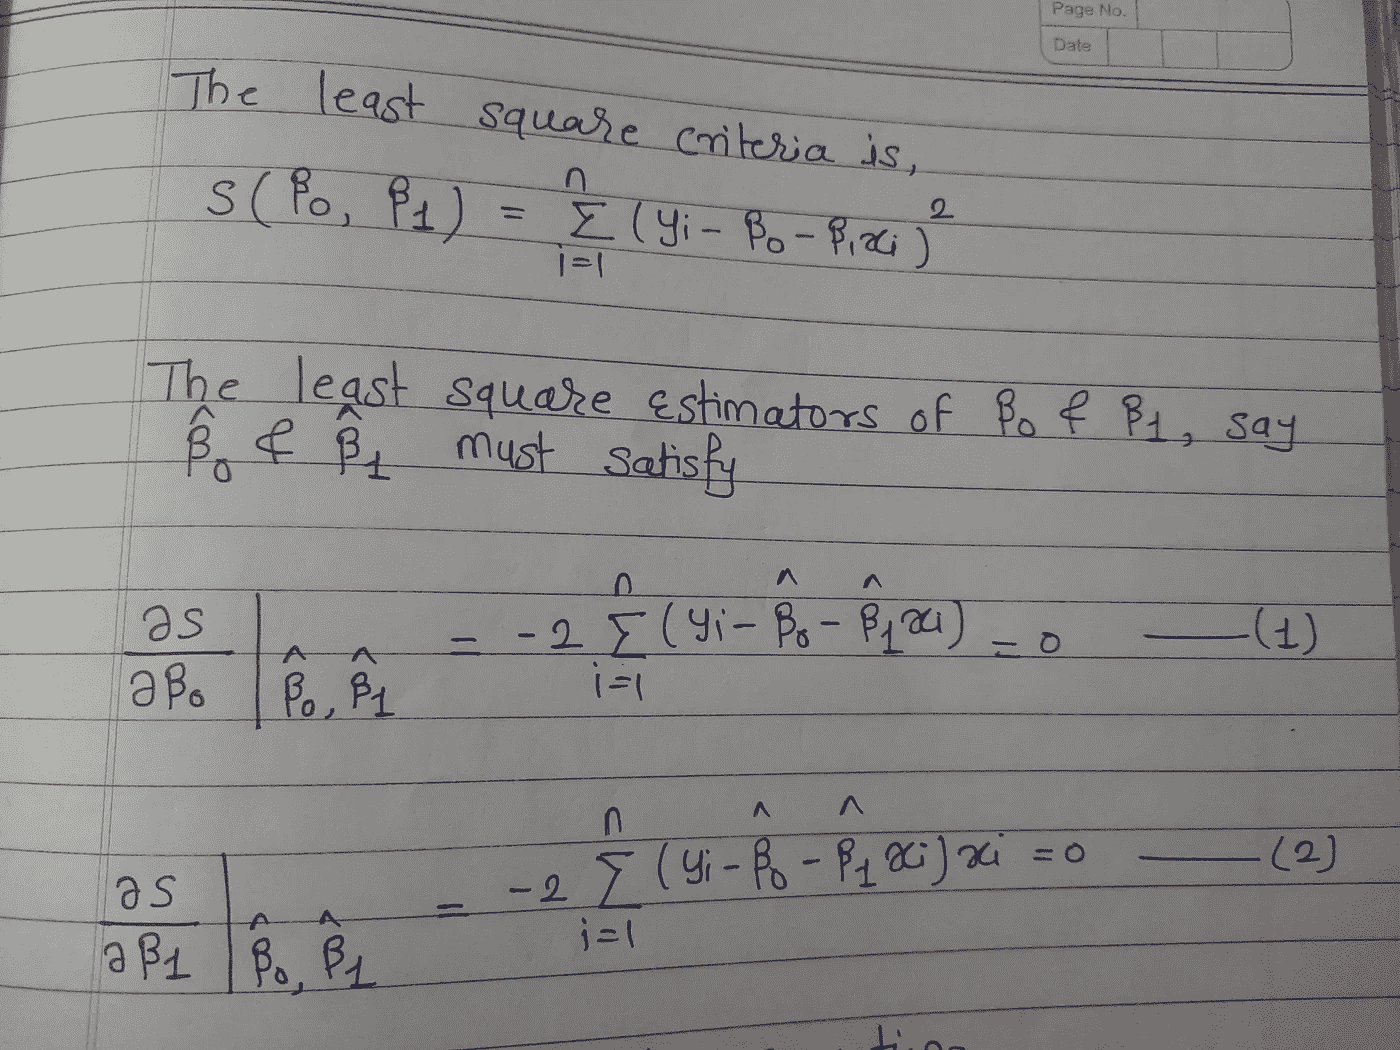 Page No.
Date
The least square criteria is,
S(β₀, β₁) = Σ_{i=1}^{n} (yi - β₀ - β₁xi)²
The least square Estimators of β₀ & β₁, say
β̂₀ & β̂₁ must satisfy
∂S/∂β₀ | β̂₀, β̂₁ = -2 Σ_{i=1}^{n} (yi - β̂₀ - β̂₁xi) = 0 —(1)
∂S/∂β₁ | β̂₀, β̂₁ = -2 Σ_{i=1}^{n} (yi - β̂₀ - β̂₁xi)xi = 0 —(2)